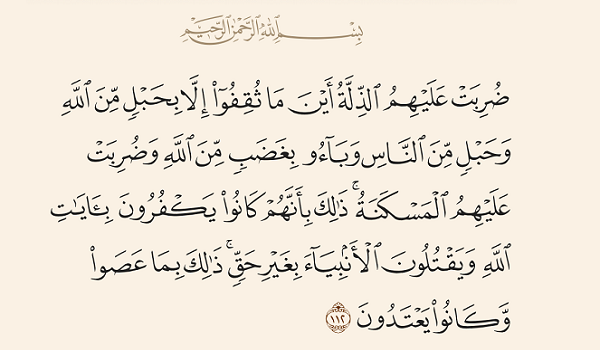 بِسْمِ ٱللَّهِ ٱلرَّحْمَٰنِ ٱلرَّحِيمِ
ضُرِبَتْ عَلَيْهِمُ ٱلذِّلَّةُ أَيْنَ مَا ثُقِفُوٓا۟ إِلَّا بِحَبْلٍ مِّنَ ٱللَّهِ
وَحَبْلٍ مِّنَ ٱلنَّاسِ وَبَآءُو بِغَضَبٍ مِّنَ ٱللَّهِ وَضُرِبَتْ
عَلَيْهِمُ ٱلْمَسْكَنَةُ ۚ ذَٰلِكَ بِأَنَّهُمْ كَانُوا۟ يَكْفُرُونَ بِـَٔايَٰتِ
ٱللَّهِ وَيَقْتُلُونَ ٱلْأَنۢبِيَآءَ بِغَيْرِ حَقٍّ ۚ ذَٰلِكَ بِمَا عَصَوا۟
وَّكَانُوا۟ يَعْتَدُونَ ١١٢